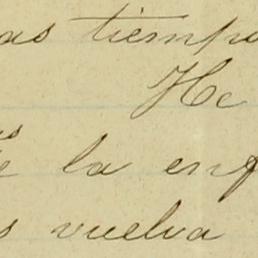 as tiempo
He
la enf
s vuelva